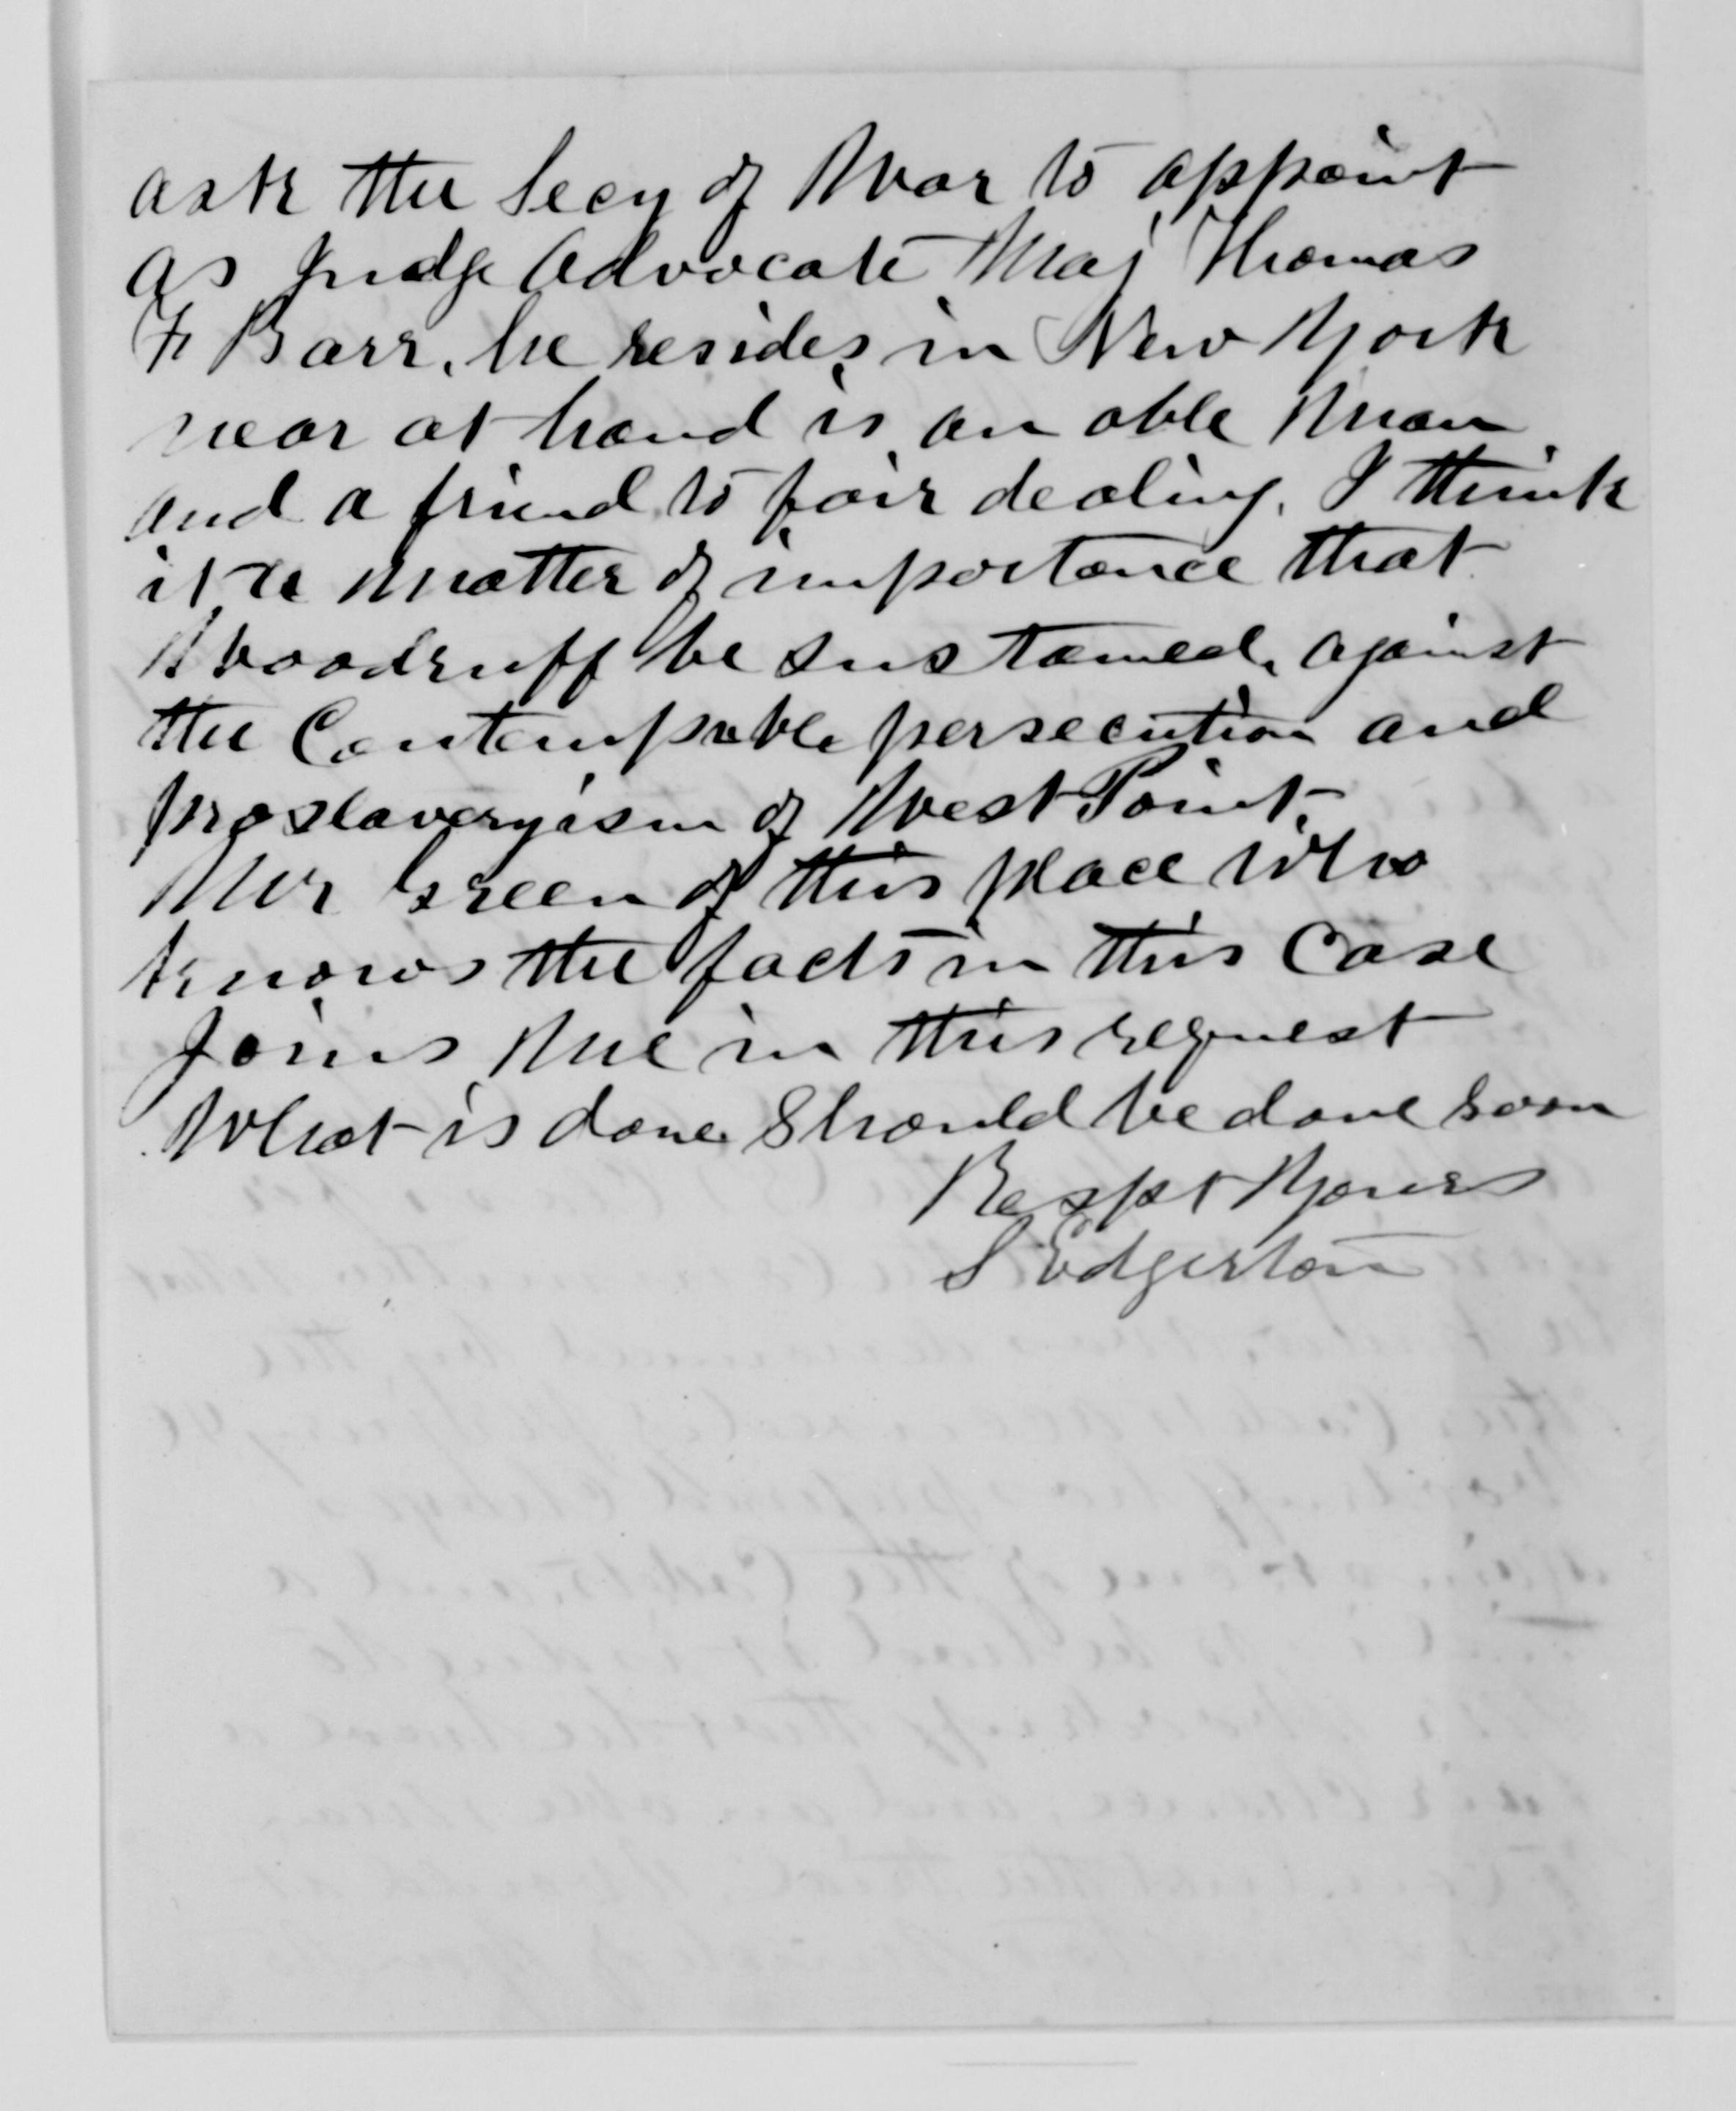 ask the Secy of War to appoint
as Judge Advocate Maj Thomas
F Barr, he resides in New York
near at hand is an able man
and a friend to fair dealing. I think
it a matter of importance that
Woodruff be sustained, against
the Contempable persecution and
proslaveryism of West Point.
Mr Green of this place who
knows the facts in this Case
Joins me in this request
What is done should be done soon
Respt Yours
S Edgerton